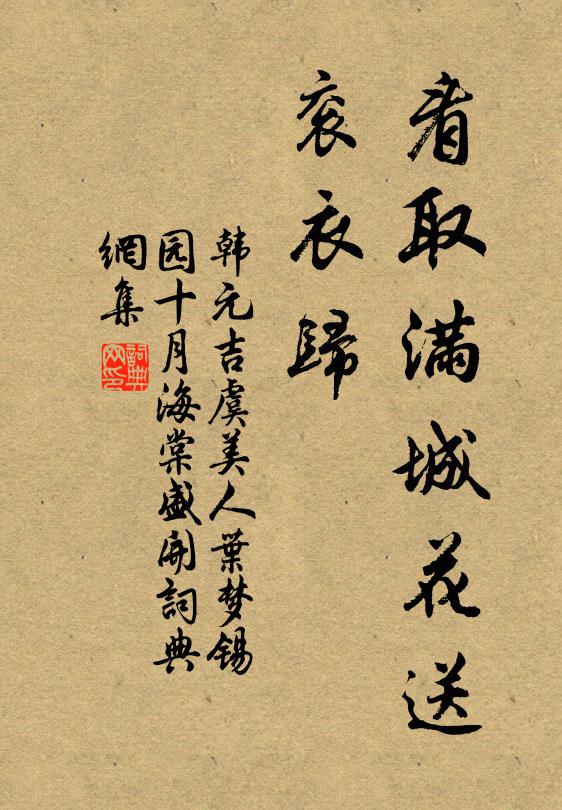 看取满城花送
衮衣歸
韩元吉虞美人葉梦锡
园十月海棠盛开詞典
網集
詞典网印